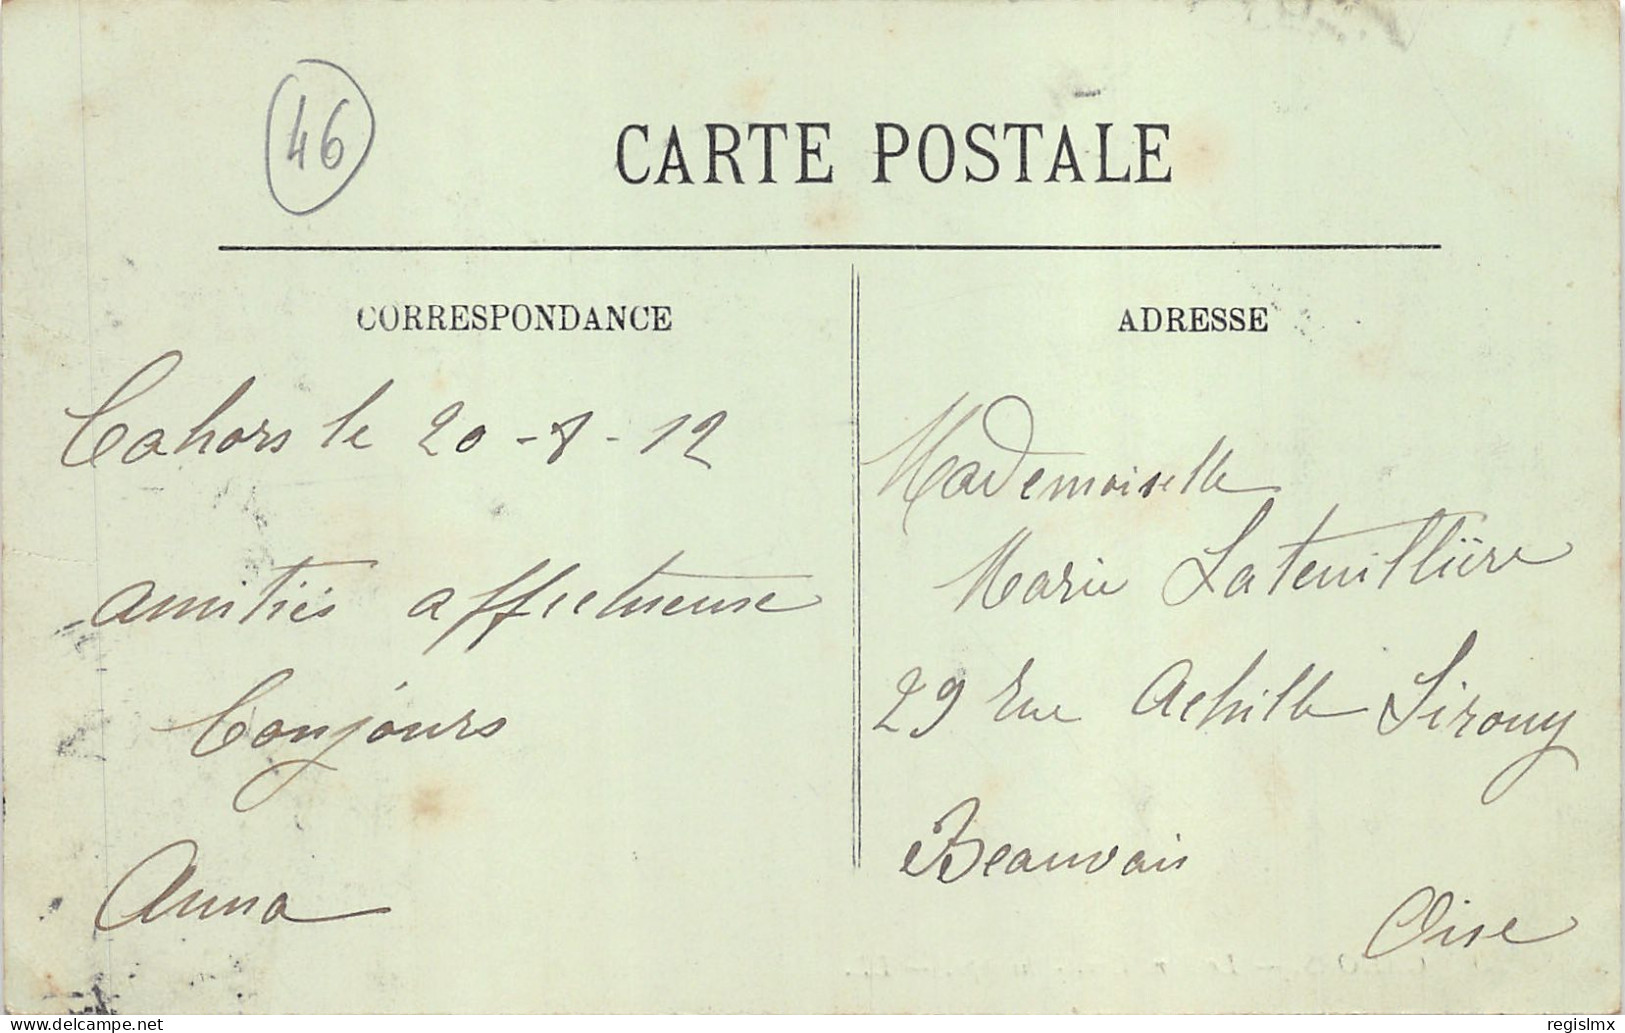 46
CARTE POSTALE
CORRESPONDANCE
Cahors le 20-8-12
amitiés affectueuse
Toujours
Anna
ADRESSE
Mademoiselle
Marie Lateuillière
29 rue Achille Sirouy
Beauvais
Oise
delcampe.net
regislmx